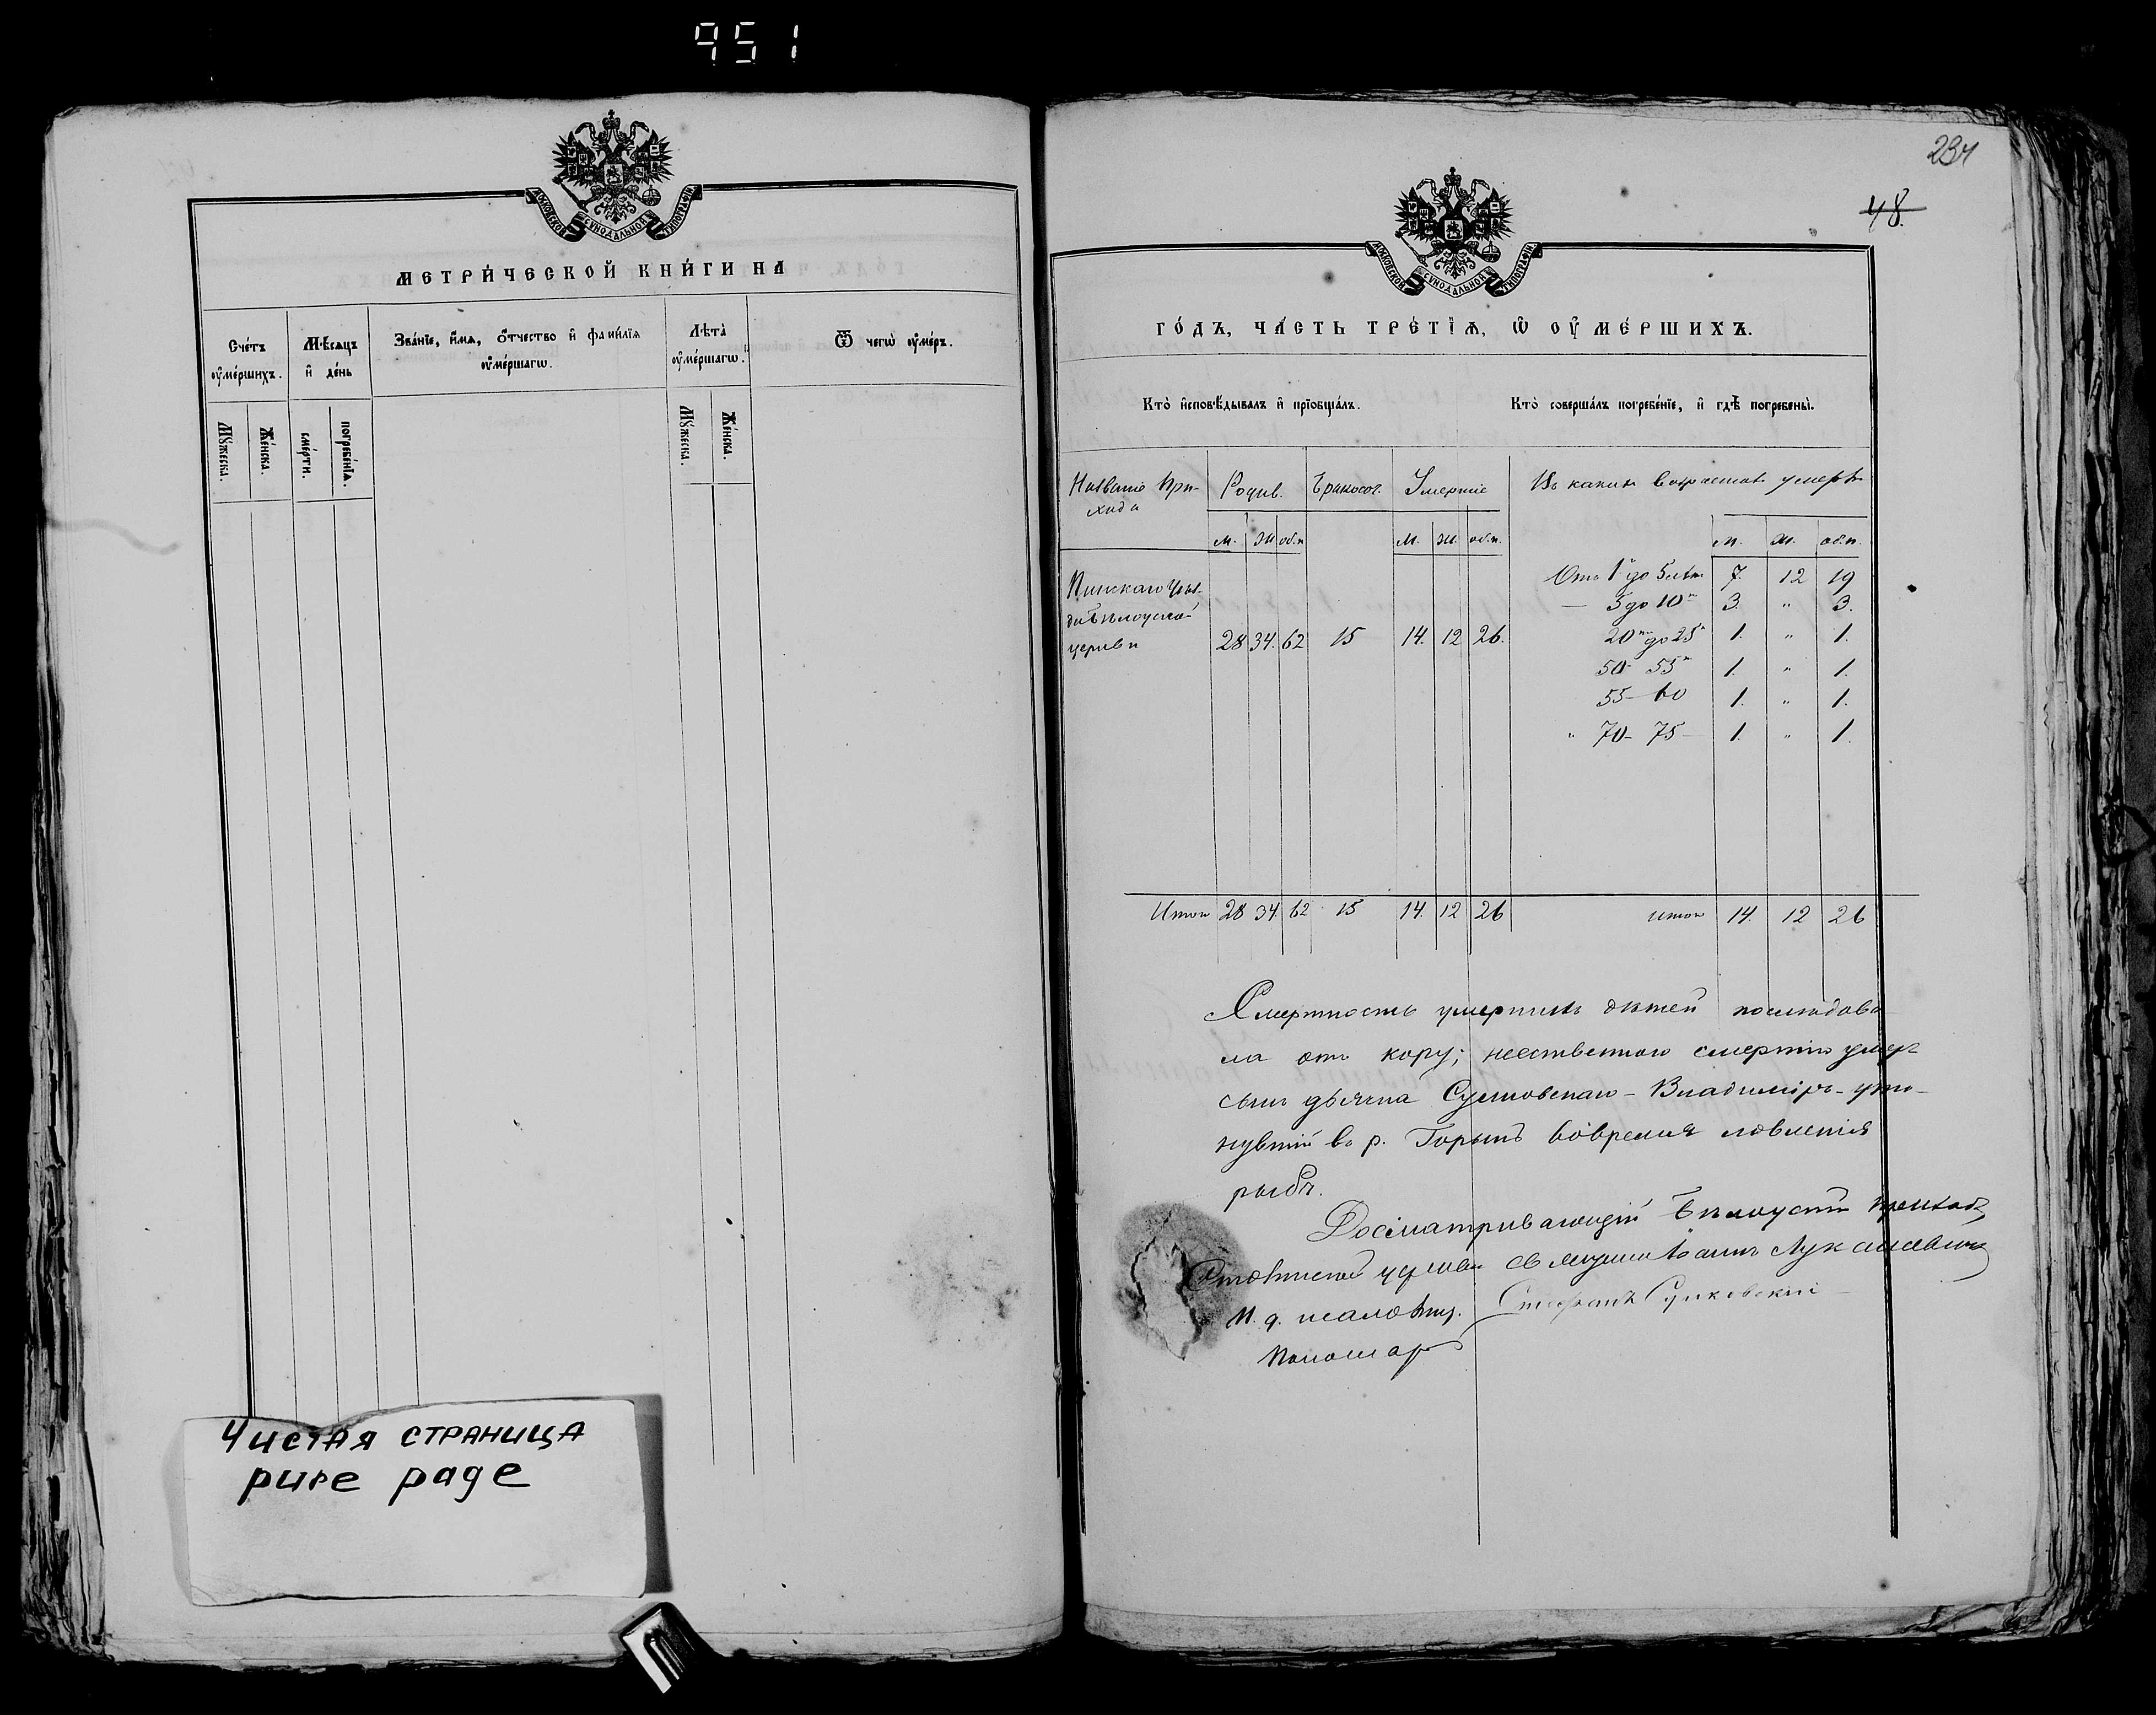 951
МОСКОВСКОЙ СѴНОДАЛЬНОЙ ТИПОГРАФІИ
МЕТРИ́ЧЕСКОЙ КНИ́ГИ НА
Сче́тъ ᲂу҆ме́ршихъ.
Мѣ́сяцъ и҆ де́нь
Зва́нїе, и҆́мѧ, ѻ҆́тчество и҆ фами́лїѧ ᲂу҆ме́ршагѡ.
Лѣта̀ ᲂу҆ме́ршагѡ.
Ѿ чегѡ̀ ᲂу҆ме́ръ.
Мꙋ́жеска.
Же́нска.
сме́рти.
погребе́нїѧ.
Мꙋ́жеска.
Же́нска.
Чистая страница
pure page
234
48.
МОСКОВСКОЙ СѴНОДАЛЬНОЙ ТИПОГРАФІИ
ГО́ДЪ, ЧА́СТЬ ТРЕ́ТЇѦ, Ѡ҆ ОУ҆МЕ́РШИХЪ.
Кто̀ и҆сповѣ́дывалъ и҆ прїобща́лъ.
Кто̀ соверша́лъ погребе́нїе, и҆ гдѣ̀ погребены̀.
Названіе При- Родив. Бракосоч. Умершіе Въ какихъ возрастахъ умерли
хода
м. ж об.п м. ж. об.п. м. ж. об.п.
Пинскаго Уѣз-
да Бѣлоуской
церкви 28 34. 62 15 14. 12 26.
Отъ 1 до 5 лѣт 7. 12 19
— 5 до 10 3. " 3.
20 до 25 1. " 1.
50 - 55 1. " 1.
55 - 60 1. " 1.
" 70 - 75 - 1. " 1.
Итого 28 34. 62 15 14. 12 26 итого 14. 12 26
Смертность умершихъ дѣтей послѣдова
ла отъ кору; неественною смертію умеръ
сынъ дьячка - Владиміръ - уто-
нувшій въ р. Горынѣ вовремя ловленія
рыбъ.
Досматривающій Бѣлоуский приход
церкви Іоаннъ Лукашевичъ
И. д. псаломщ. Стефанъ
Пономарь